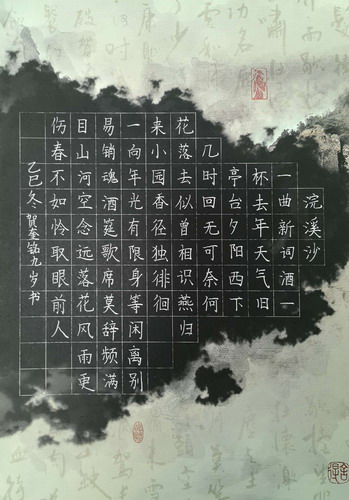 浣溪沙
一曲新词酒一
杯去年天气旧
亭台夕阳西下
几时回无可奈何
花落去似曾相识燕归
来小园香径独徘徊
一向年光有限身等闲离别
易销魂酒筵歌席莫辞频满
目山河空念远落花风雨更
伤春不如怜取眼前人
乙巳冬 贺奎铭九岁书